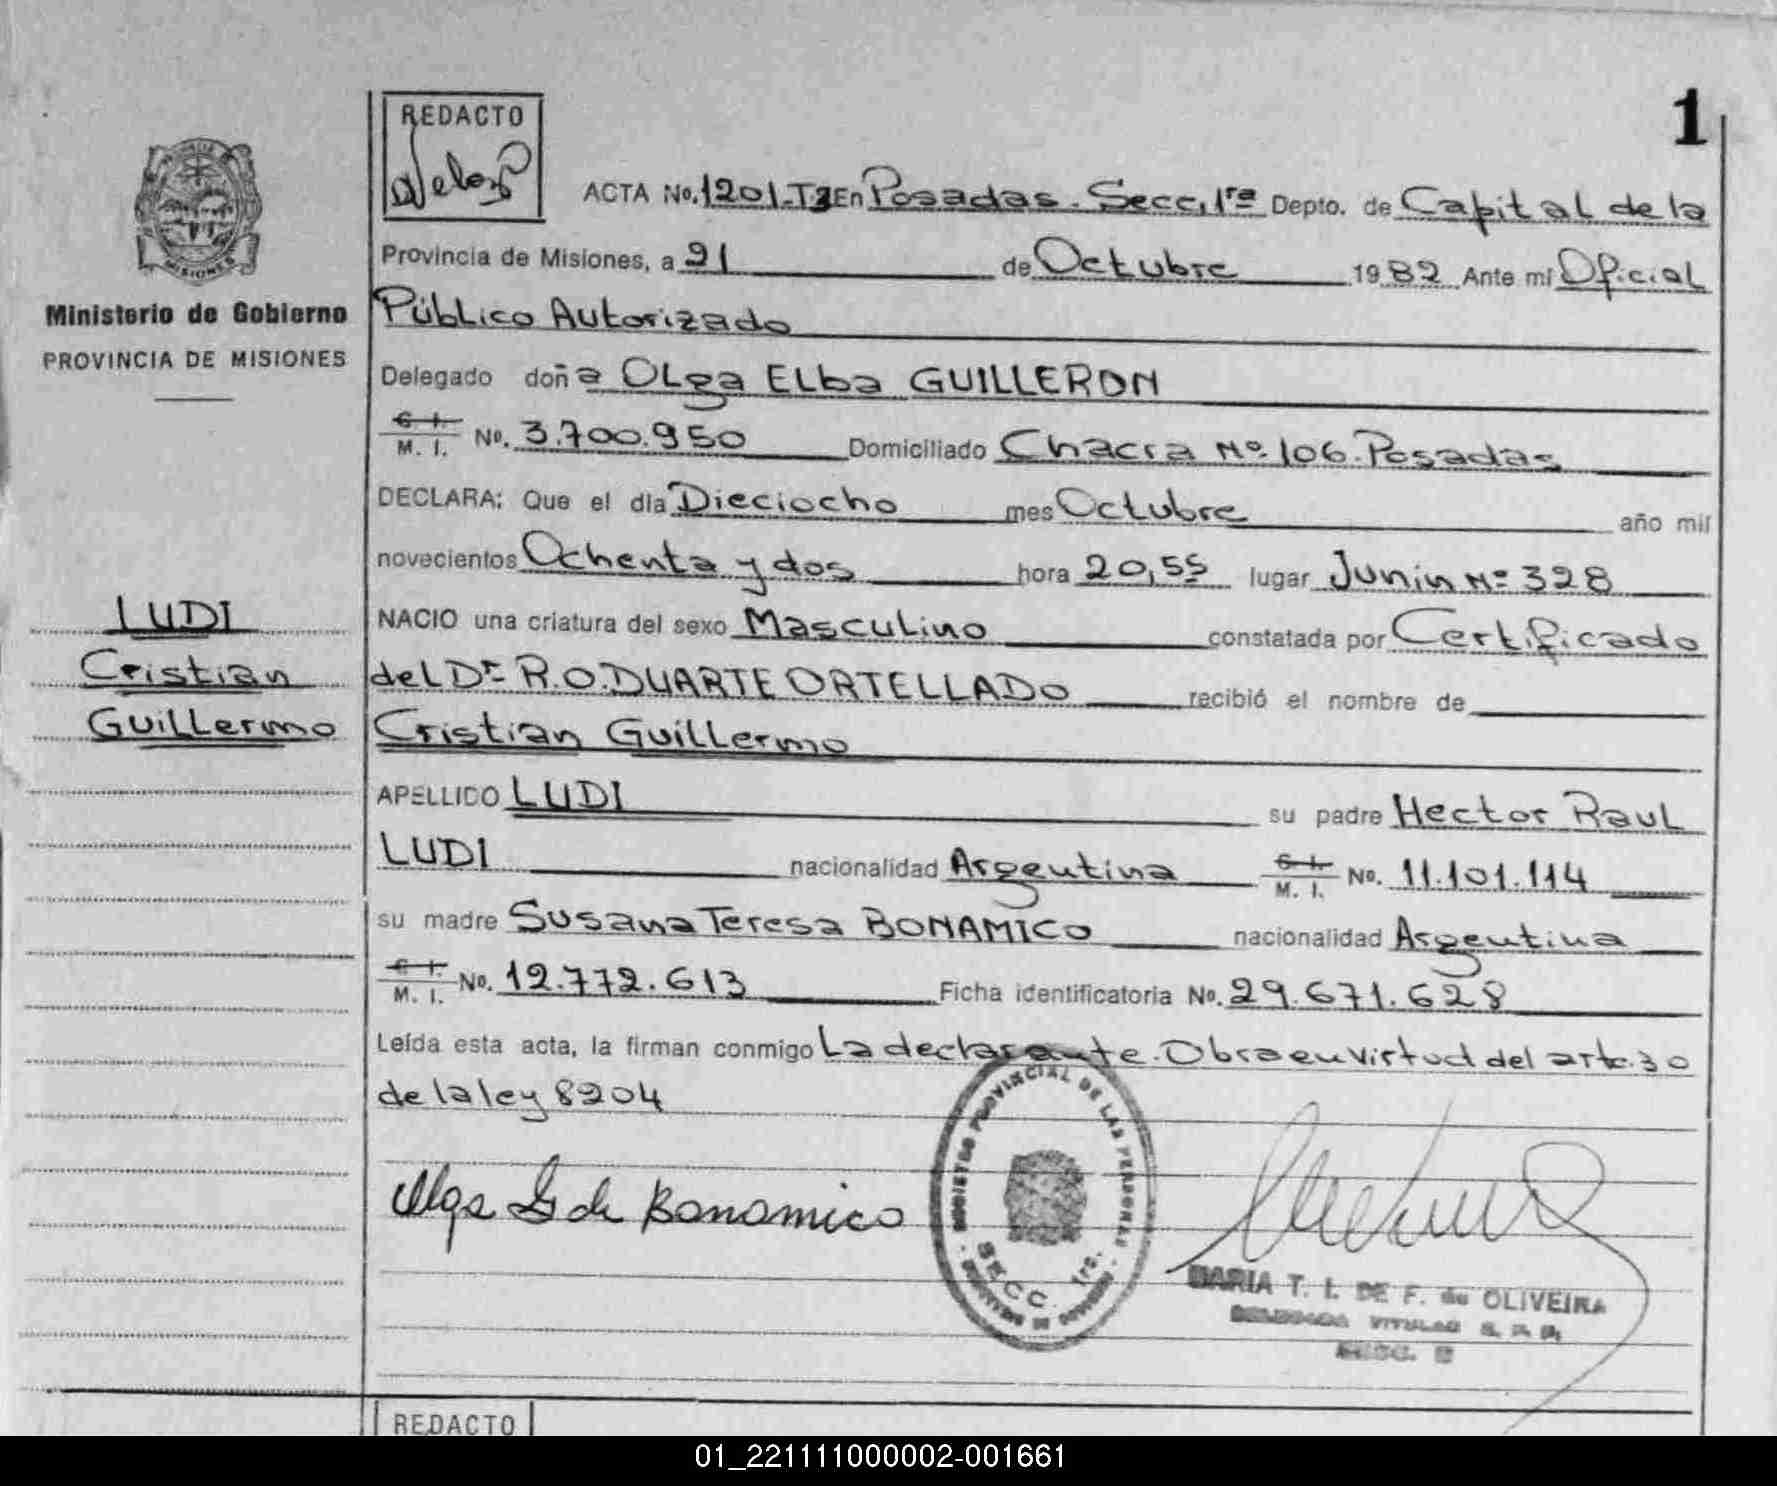 1
REDACTO
ACTA No. 1201-T3 En Posadas. Secc. 1ra Depto. de Capital de la
Provincia de Misiones, a 21 de Octubre 1982 Ante mi Oficial
Público Autorizado
Delegado doña Olga Elba GUILLERON
C. I.
M. I. No. 3.700.950 Domiciliado Chacra No. 106. Posadas
DECLARA: Que el dia Dieciocho mes Octubre año mil
novecientos Ochenta y dos hora 20,55 lugar Junin No 328
NACIO una criatura del sexo Masculino constatada por Certificado
del Dr. R.O. DUARTE ORTELLADO recibió el nombre de
Cristian Guillermo
APELLIDO LUDI su padre Hector Raul
LUDI nacionalidad Argentina C. I.
M. I. No. 11.101.114
su madre Susana Teresa BONAMICO nacionalidad Argentina
C. I.
M. I. No. 12.772.613 Ficha identificatoria No. 29.671.628
Leída esta acta, la firman conmigo La declarante. Obra en virtud del artc. 30
de la ley 8204
Olga G de Bonamico
REGISTRO PROVINCIAL DE LAS PERSONAS
SECC. 1ra.
MARIA T. I. DE F. de OLIVEIRA
MISIONES
Ministerio de Gobierno
PROVINCIA DE MISIONES
LUDI
Cristian
Guillermo
REDACTO
01_221111000002-001661